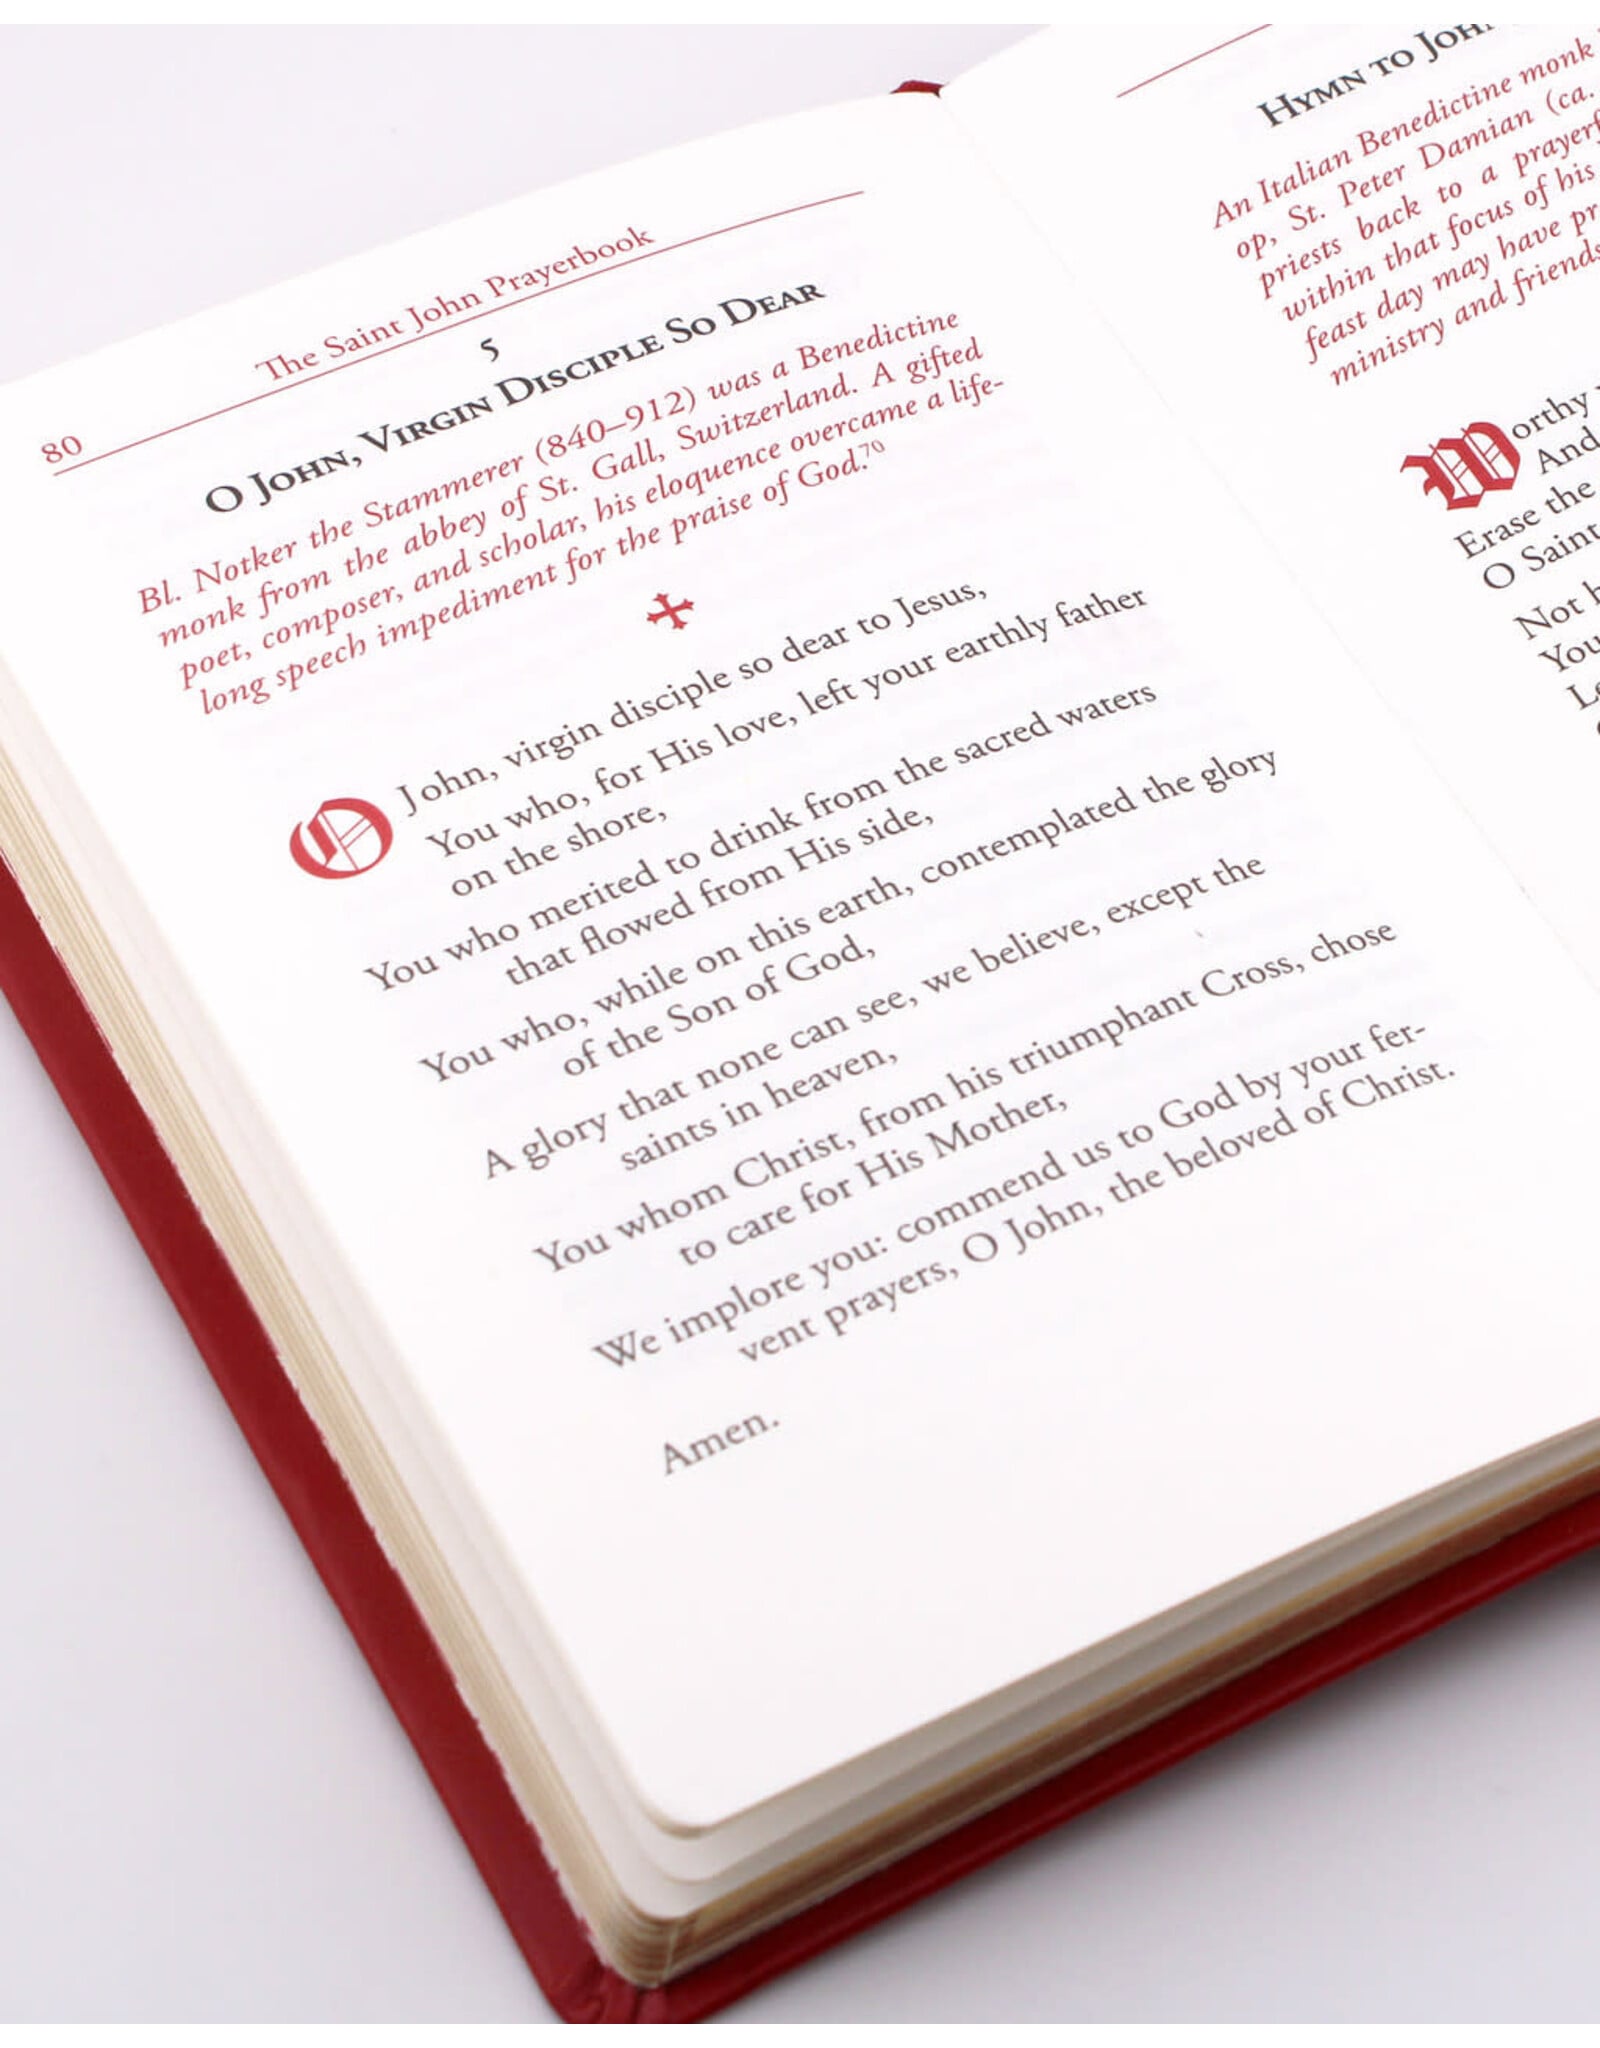 80
The Saint John Prayerbook
5
O John, Virgin Disciple So Dear
Bl. Notker the Stammerer (840–912) was a Benedictine
monk from the abbey of St. Gall, Switzerland. A gifted
poet, composer, and scholar, his eloquence overcame a life-
long speech impediment for the praise of God.70
O John, virgin disciple so dear to Jesus,
You who, for His love, left your earthly father
on the shore,
You who merited to drink from the sacred waters
that flowed from His side,
You who, while on this earth, contemplated the glory
of the Son of God,
A glory that none can see, we believe, except the
saints in heaven,
You whom Christ, from his triumphant Cross, chose
to care for His Mother,
We implore you: commend us to God by your fer-
vent prayers, O John, the beloved of Christ.
Amen.
Hymn to
An Italian Benedictine monk
op, St. Peter Damian (ca.
priests back to a
within that focus of his
feast day may have
ministry and
Worthy
And
Erase the
O Saint
Not
You